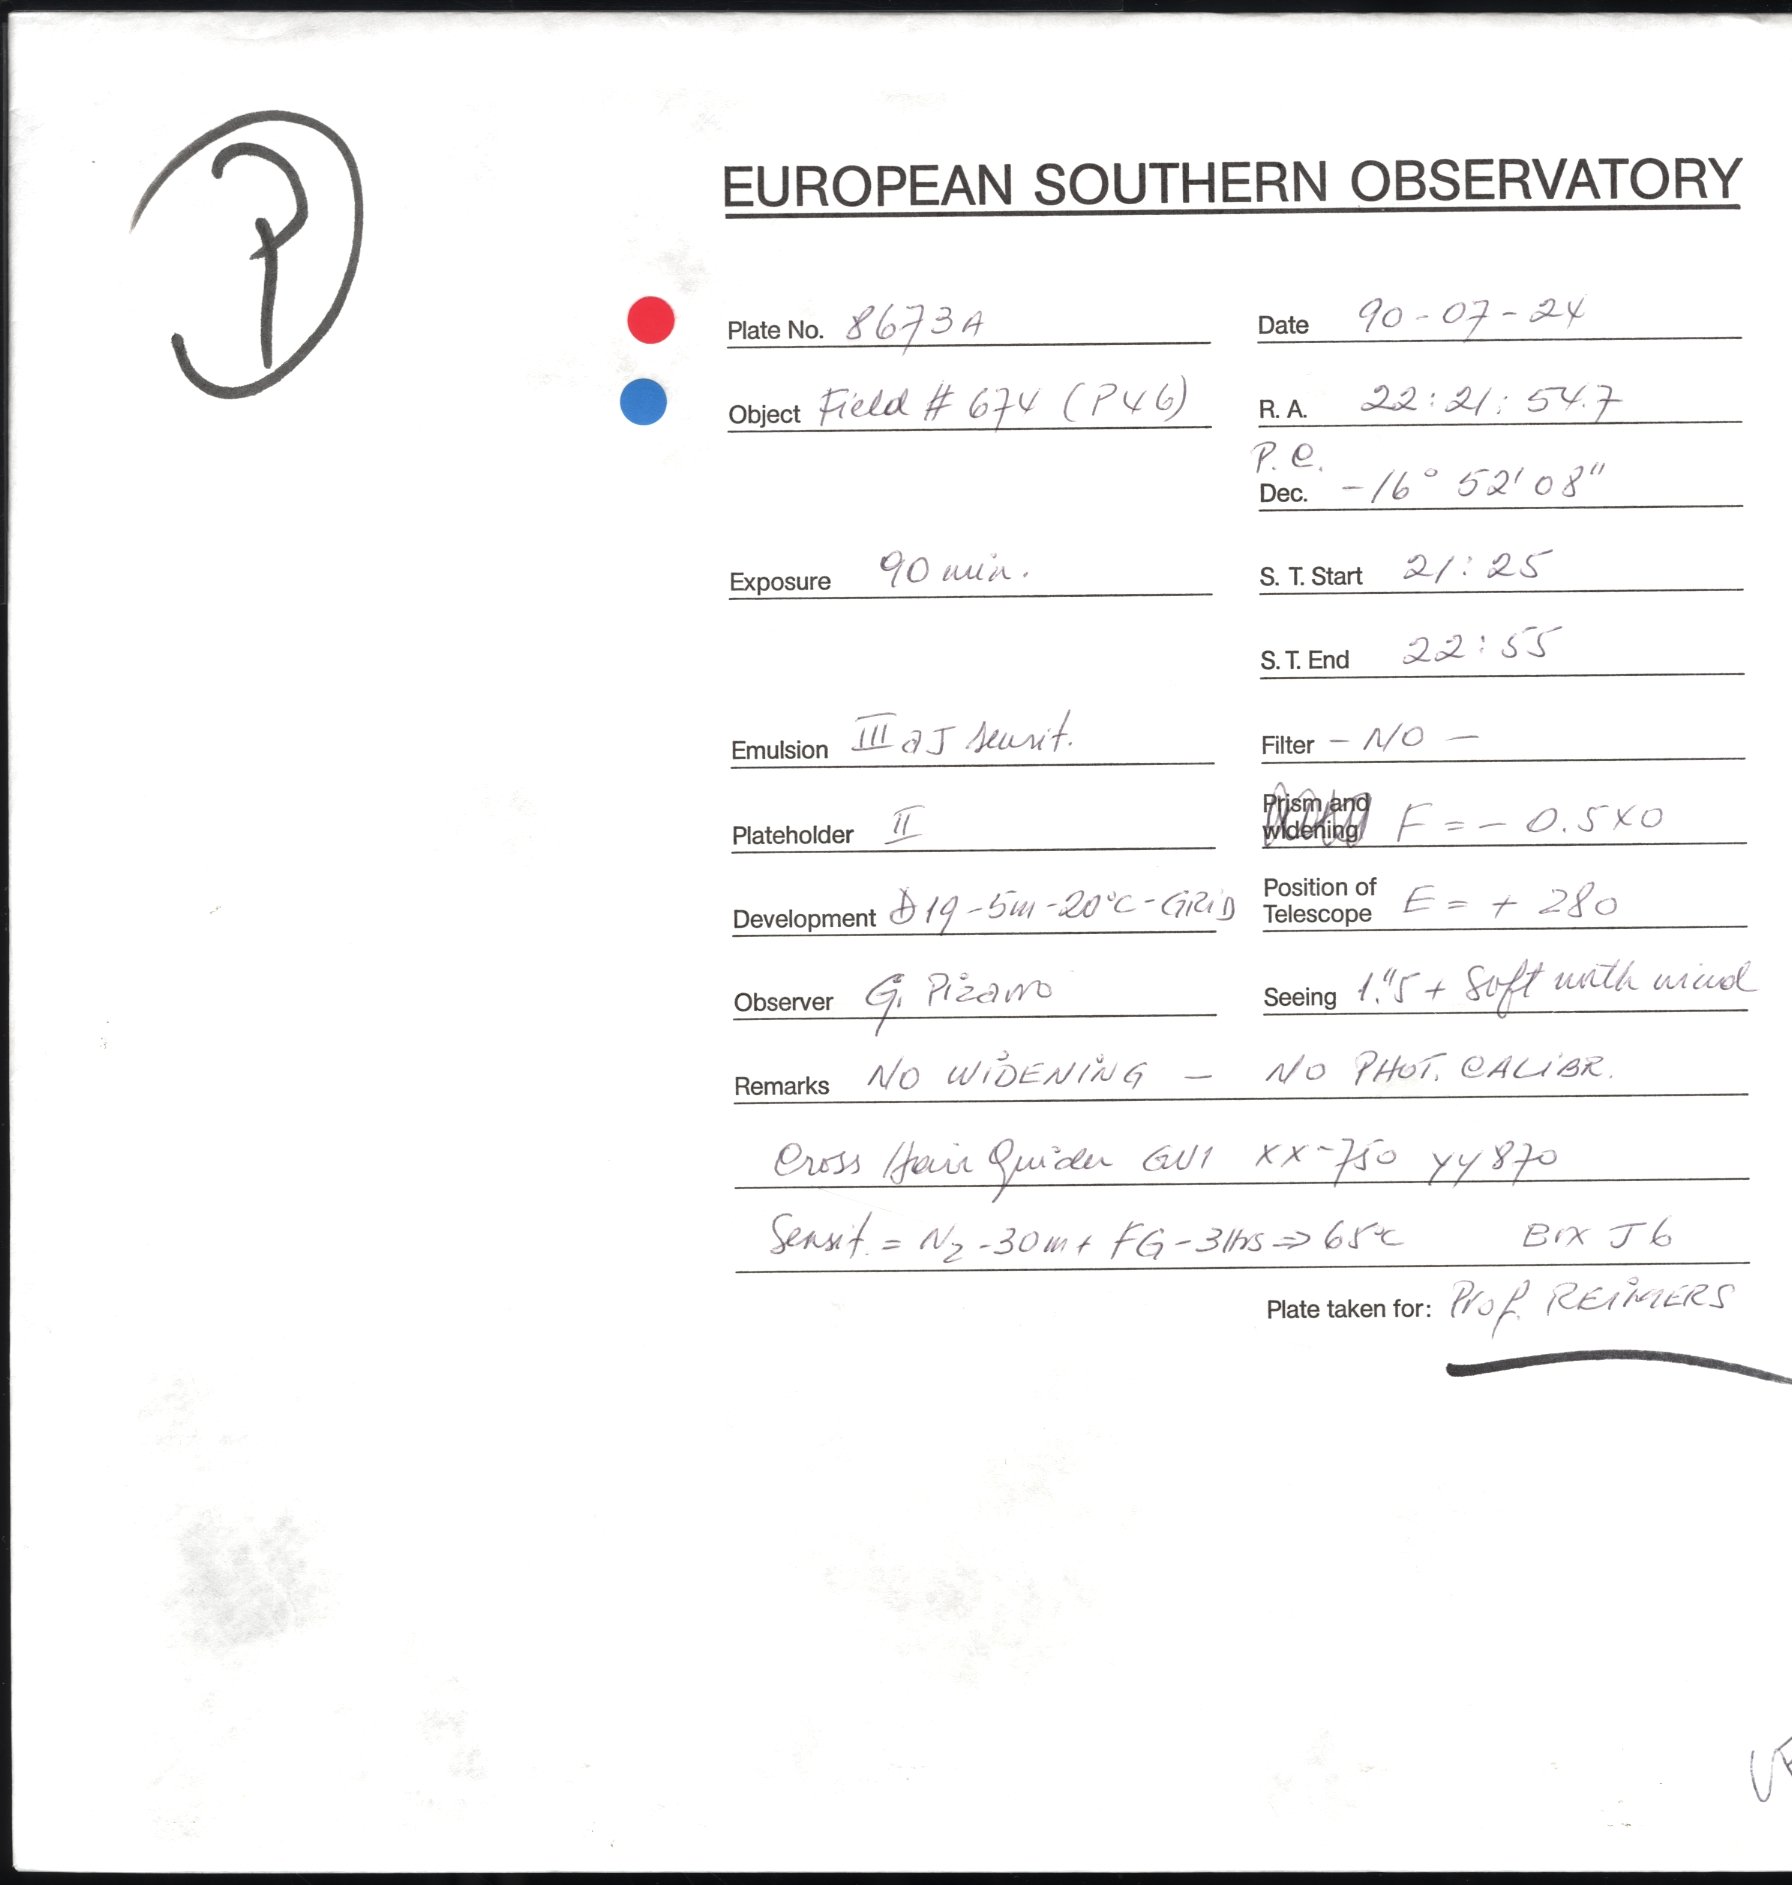 P
EUROPEAN SOUTHERN OBSERVATORY
Plate No. 8673A Date 90-07-24
Object Field # 674 (P46) R. A. 22:21:54.7
P. C.
Dec. -16° 52' 08"
Exposure 90 min. S. T. Start 21:25
S. T. End 22:55
Emulsion III aJ sensit. Filter - NO -
Plateholder II Prism and widening F = - 0.5x0
Development D19-5m-20°C-GRID Position of Telescope E = + 280
Observer G. Pizarro Seeing 1."5 + Soft with wind
Remarks NO WIDENING - NO PHOT. CALIBR.
Cross Hair Guider GV1 XX-750 YY870
Sensit. = N2-30m + FG-3Hrs => 65°C Box J6
Plate taken for: Prof. REIMERS